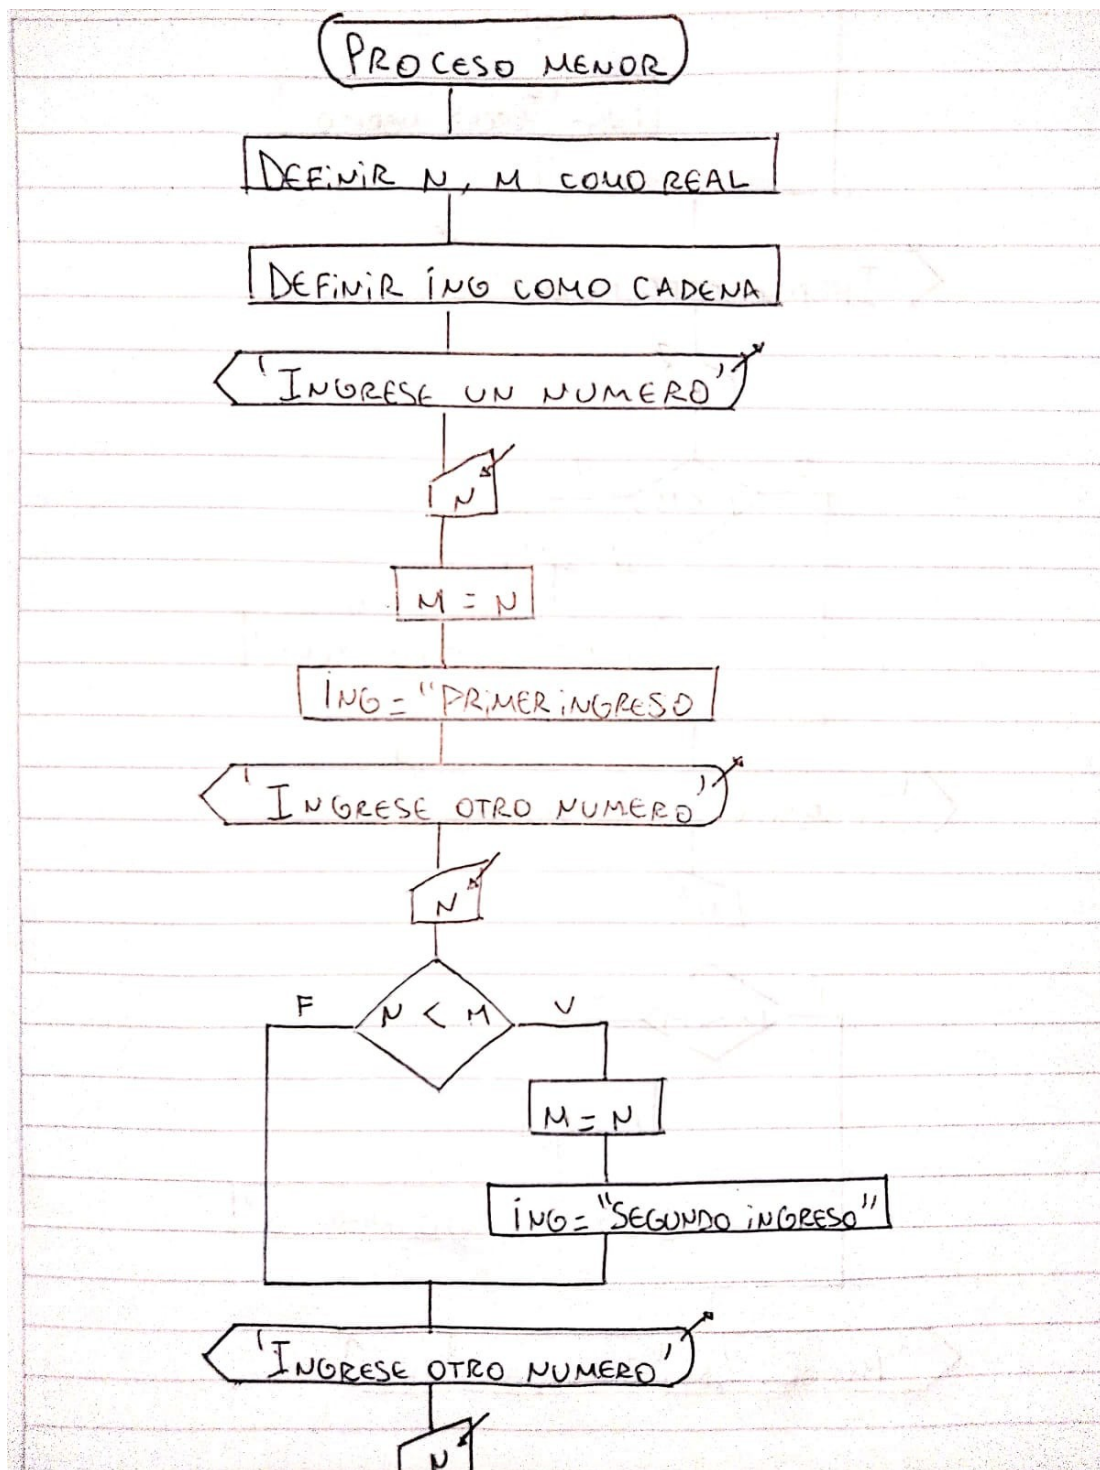 PROCESO MENOR
DEFINIR N, M COMO REAL
DEFINIR ING COMO CADENA
'INGRESE UN NUMERO'
N
M = N
ING = "PRIMER INGRESO
'INGRESE OTRO NUMERO'
N
F N < M V
M = N
ING = "SEGUNDO INGRESO"
'INGRESE OTRO NUMERO'
N